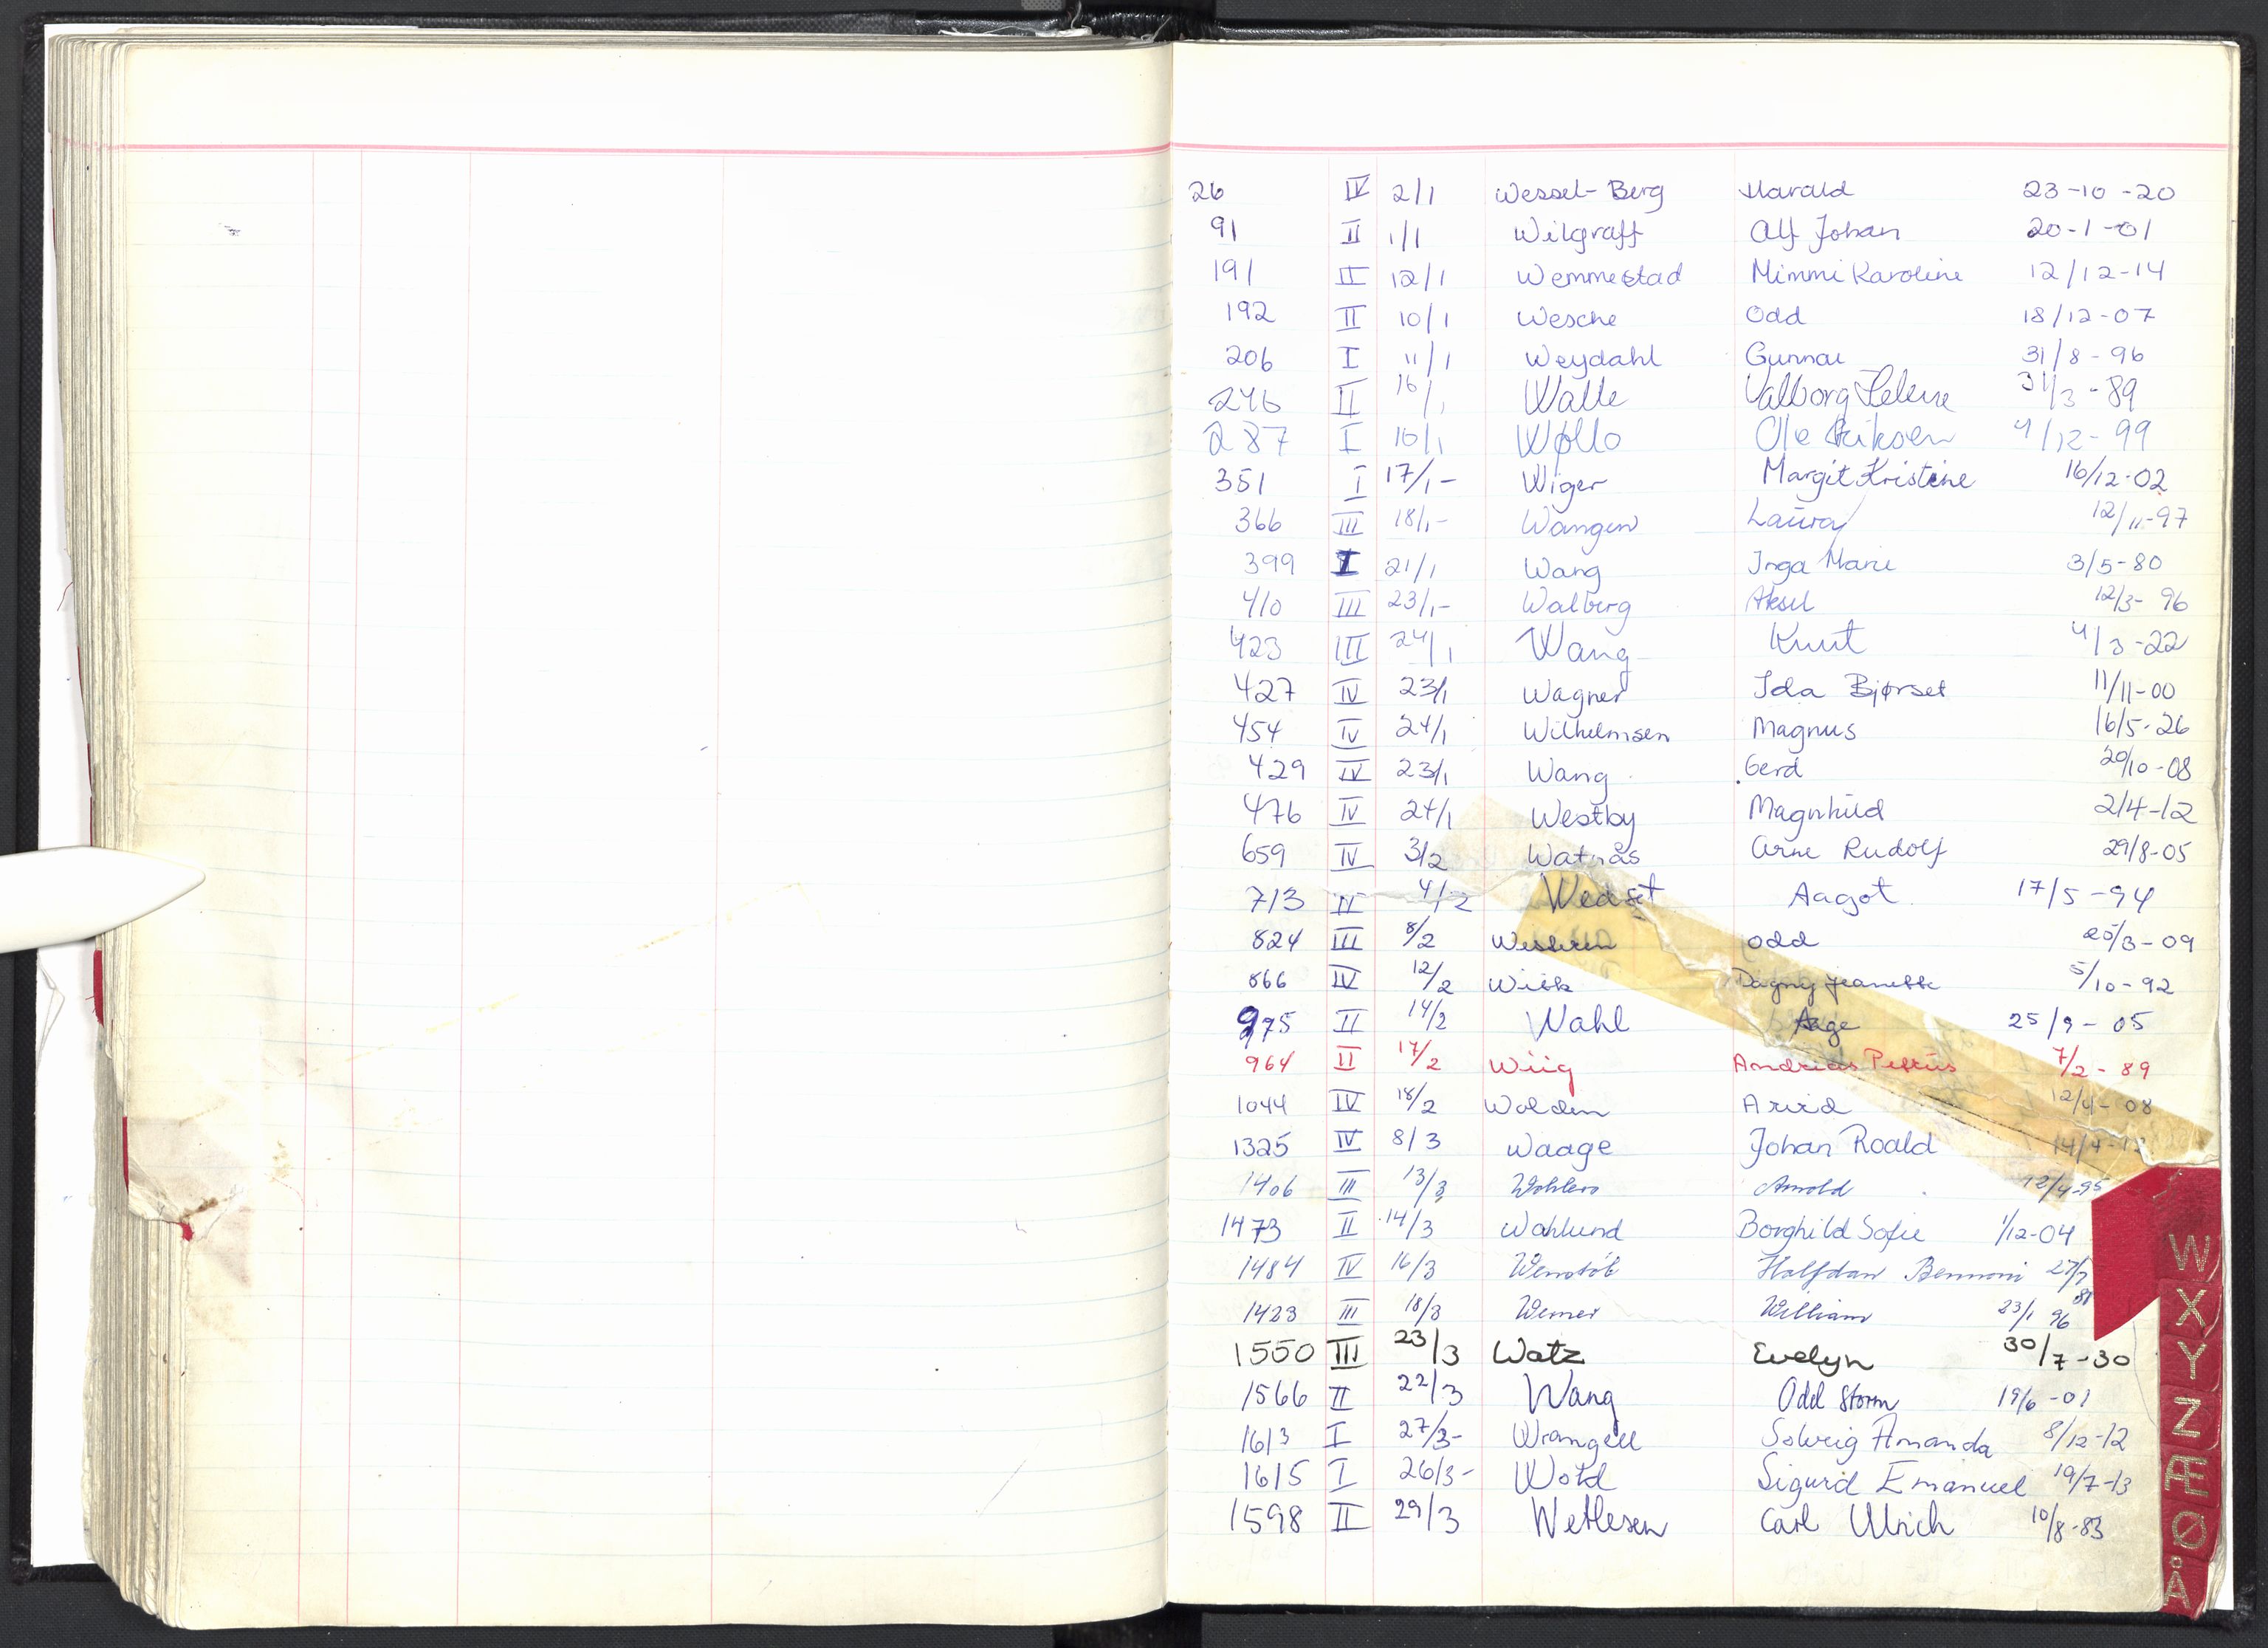 26 IV 2/1 Wessel-Berg Harald 23-10-20
91 II 1/1 Wilgraff Alf Johan 20-1-01
191 II 12/1 Wemmestad Mimmi Karoline 12/12-14
192 II 10/1 Wesche Odd 18/12-07
206 I 11/1 Weydahl Gunnar 31/8-96
246 II 16/1 Walle Valborg Helene 31/3-89
287 I 10/1 Wøllo Ole Eriksen 4/12-99
351 I 17/1- Wiger Margit Kristine 16/12-02
366 III 18/1- Wangen Laura 12/11-97
399 I 21/1 Wang Inga Marie 3/5-80
410 III 23/1- Walberg Aksel 12/3-96
423 III 24/1 Wang Knut 4/3-22
427 IV 23/1 Wagner Ida Bjørset 11/11-00
454 IV 24/1 Wilhelmsen Magnus 16/5-26
429 IV 23/1 Wang Gerd 20/10-08
476 IV 24/1 Westby Magnhild 2/4-12
659 IV 3/2 Watnås Arne Rudolf 29/8-05
713 II 4/2 Wedset Aagot 17/5-94
824 III 8/2 Odd 25/3-09
866 IV 12/2 Wiik Dagny Jeanette 5/10-92
975 II 14/2 Wahl Aage 25/9-05
964 II 17/2 Wiig Andreas Petrus 7/2-89
1044 IV 18/2 Wolden Arvid 12/4-08
1325 IV 8/3 Waage Johan Roald
1406 III 13/3 Wohlers Arnold 12/4-95
1473 II 14/3 Wahlund Borghild Sofie 1/12-04
1484 IV 16/3 Halfdan Bennoni 27/7
81
1423 III 18/3 Werner William 23/1 96
1550 III 23/3 Watz Evelyn 30/7-30
1566 II 22/3 Wang Odd Storm 19/6-01
1613 I 27/3- Wrangell Solveig Amanda 8/12-12
1615 I 26/3- Wold Sigurd Emanuel 19/7-13
1598 II 29/3 Wetlesen Carl Ulrich 10/8-83
W
X
Y
Z
Æ
Ø
Å